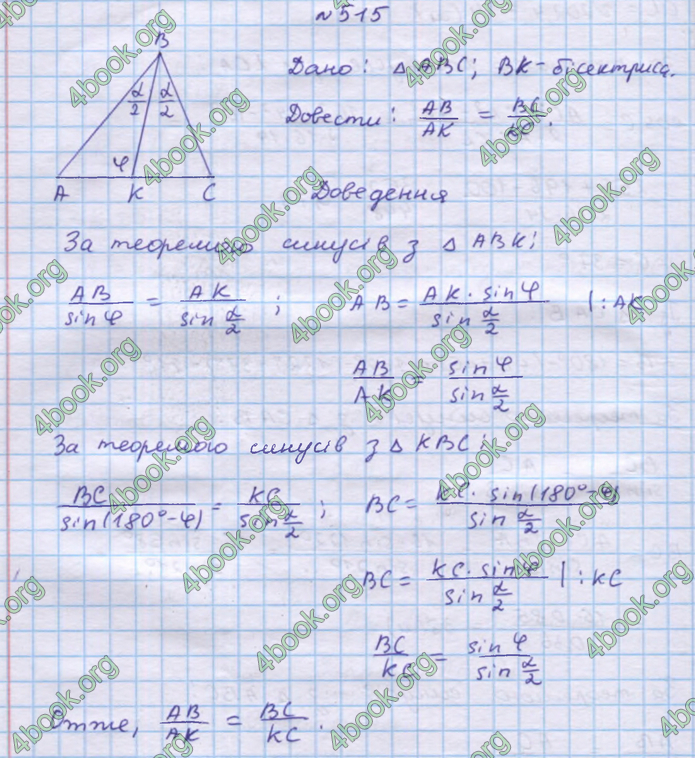 № 515
B
α/2 α/2
φ
A K C
Дано: △ ABC; BK - бісектриса.
Довести: AB/AK = BC/
Доведення
За теоремою синусів з △ ABK:
AB/sin φ = AK/sin α/2 ; AB = AK · sin φ/sin α/2 | : AK
AB/AK = sin φ/sin α/2
За теоремою синусів з △ KBC:
BC/sin(180° - φ) = KC/sin α/2 ; BC = KC · sin(180° - φ)/sin α/2
BC = KC · sin φ/sin α/2 | : KC
BC/KC = sin φ/sin α/2
Отже, AB/AK = BC/KC.
4book.org